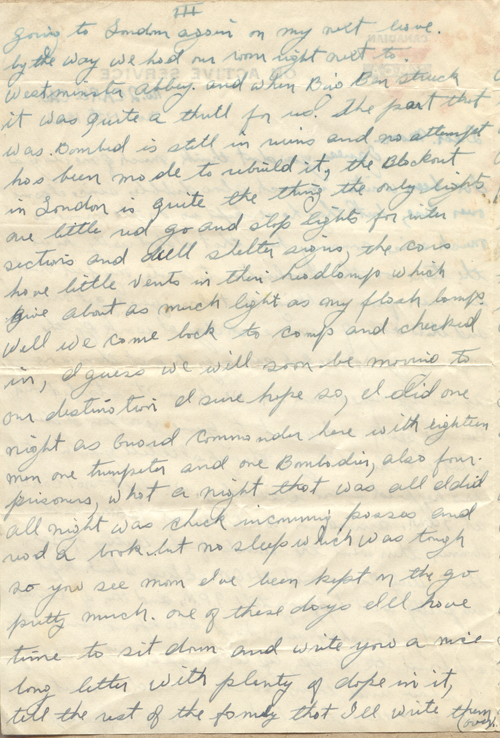 III
going to London again on my next leave.
by the way we had our room right next to.
Westminster abbey. and when Big Ben struck
it was quite a thrill for us. The part that
was Bombed is still in ruins and no attempt
has been made to rebuild it, the Blackout
in London is quite the thing, the only lights
are little red go and stop lights for inter
sections and dull shelter signs, the cars
have little vents in their headlamps which
give about as much light as my flash lamp.
Well we came back to camp and checked
in, I guess we will soon be moving to
our destination I sure hope so, I did one
night as Guard Commander here with eighteen
men one trumpeter and one Bombadier, also four.
prisoners, what a night that was all I did
all night was check incoming passes and
read a book. but no sleep which was tough
so you see mom I've been kept on the go
pretty much. one of these days I'll have
time to sit down and write you a nice
long letter with plenty of dope in it,
tell the rest of the family that I'll write them
(over).
CANADIAN
ON ACTIVE SERVICE